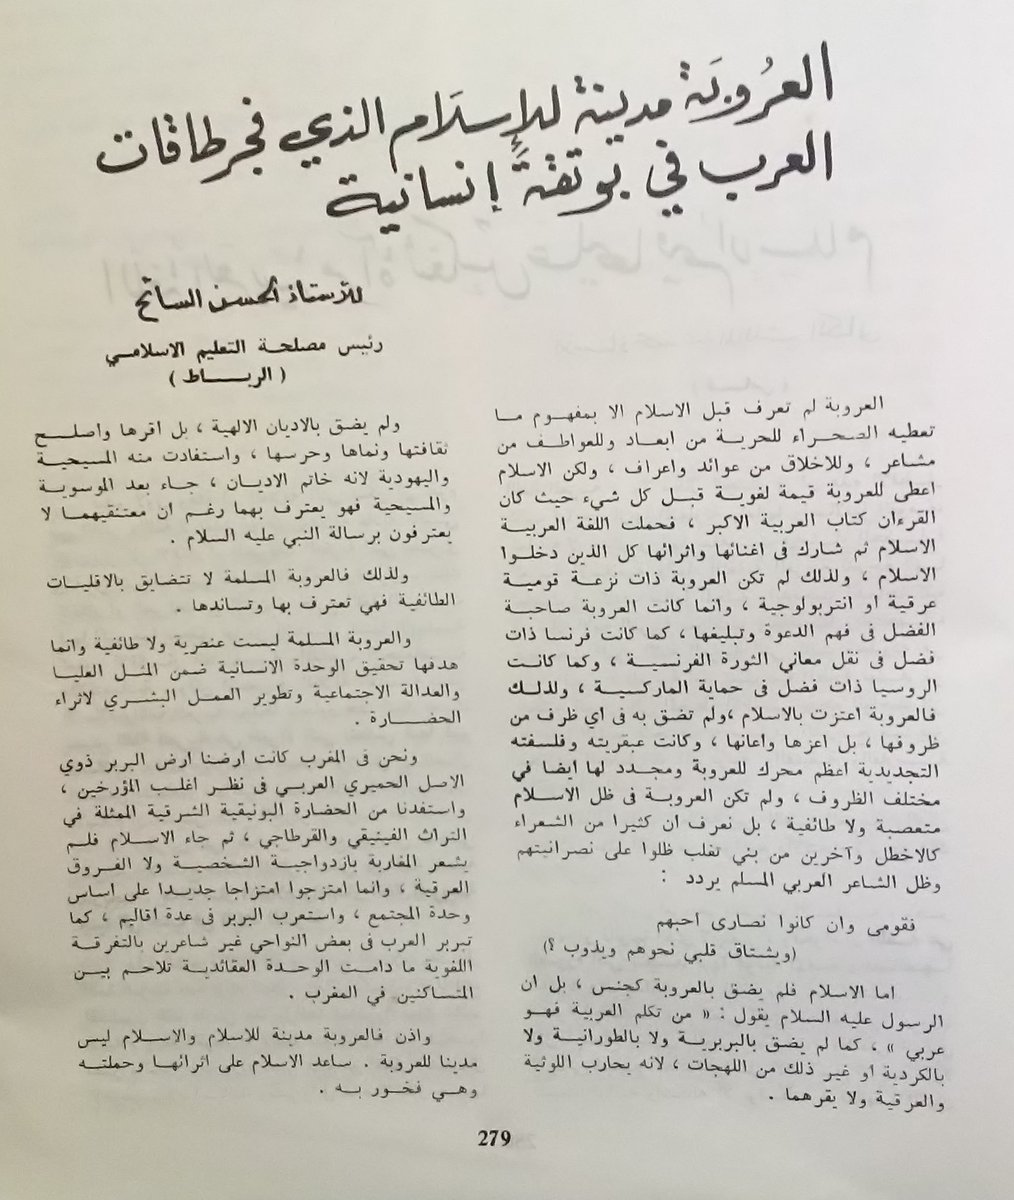 العُروبَة مدينة للإسلَام الذي فجر طاقات
العرب في بوتقةٍ إنسانية
للأستاذ الحسن السائح
رئيس مصلحة التعليم الاسلامي
( الربــــاط )
العروبة لم تعرف قبل الاسلام الا بمفهوم ما
تعطيه الصحراء للحرية من ابعاد وللعواطف من
مشاعر ، وللاخلاق من عوائد واعراف ، ولكن الاسلام
اعطى للعروبة قيمة لغوية قبل كل شيء حيث كان
القرءان كتاب العربية الاكبر ، فحملت اللغة العربية
الاسلام ثم شارك فى اغنائها واثرائها كل الذين دخلوا
الاسلام ، ولذلك لم تكن العروبة ذات نزعة قومية
عرقية او انتربولوجية ، وانما كانت العروبة صاحبة
الفضل فى فهم الدعوة وتبليغها ، كما كانت فرنسا ذات
فضل فى نقل معاني الثورة الفرنسية ، وكما كانت
الروسيا ذات فضل فى حماية الماركسية ، ولذلك
فالعروبة اعتزت بالاسلام ،ولم تضق به فى اي ظرف من
ظروفها ، بل اعزها واعانها ، وكانت عبقريته وفلسفته
التجديدية اعظم محرك للعروبة ومجدد لها ايضا في
مختلف الظروف ، ولم تكن العروبة فى ظل الاسلام
متعصبة ولا طائفية ، بل نعرف ان كثيرا من الشعراء
كالاخطل وآخرين من بني تغلب ظلوا على نصرانيتهم
وظل الشاعر العربي المسلم يردد :
فقومى وان كانوا نصارى احبهم
(ويشتاق قلبي نحوهم ويذوب ؟)
اما الاسلام فلم يضق بالعروبة كجنس ، بل ان
الرسول عليه السلام يقول : « من تكلم العربية فهو
عربي » ، كما لم يضق بالبربرية ولا بالطورانية ولا
بالكردية او غير ذلك من اللهجات ، لانه يحارب اللوثية
والعرقية ولا يقرهما .
ولم يضق بالاديان الالهية ، بل اقرها واصلح
ثقافتها ونماها وحرسها ، واستفادت منه المسيحية
واليهودية لانه خاتم الاديان ، جاء بعد الموسوية
والمسيحية فهو يعترف بهما رغم ان معتنقيهما لا
يعترفون برسالة النبي عليه السلام .
ولذلك فالعروبة المسلمة لا تتضايق بالاقليات
الطائفية فهي تعترف بها وتساندها .
والعروبة المسلمة ليست عنصرية ولا طائفية وانما
هدفها تحقيق الوحدة الانسانية ضمن المثل العليا
والعدالة الاجتماعية وتطوير العمل البشري لاثراء
الحضـــارة .
ونحن فى المغرب كانت ارضنا ارض البربر ذوي
الاصل الحميري العربي فى نظر اغلب المؤرخين ،
واستفدنا من الحضارة البونيقية الشرقية الممثلة في
التراث الفينيقي والقرطاجي ، ثم جاء الاسلام فلم
يشعر المغاربة بازدواجية الشخصية ولا الفروق
العرقية ، وانما امتزجوا امتزاجا جديدا على اساس
وحدة المجتمع ، واستعرب البربر فى عدة اقاليم ، كما
تبربر العرب فى بعض النواحي غير شاعرين بالتفرقة
اللغوية ما دامت الوحدة العقائدية تلاحم بين
المتساكنين في المغرب .
واذن فالعروبة مدينة للاسلام والاسلام ليس
مدينا للعروبة . ساعد الاسلام على اثرائها وحملته
وهـي فخور به .
279